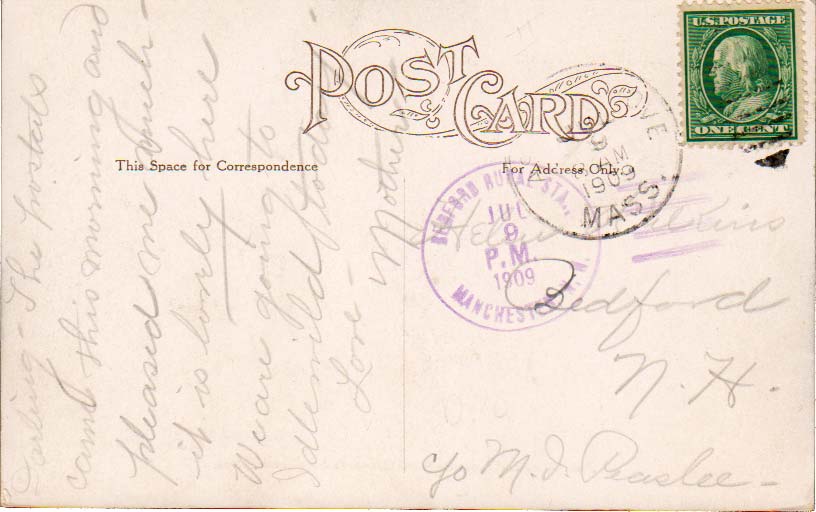 POST CARD
This Space for Correspondence
For Address Only.
U.S. POSTAGE
ONE CENT
9
AM
1909
MASS.
BEDFORD RURAL STA.,
JUL
9
P.M.
1909
MANCHESTER, N.H.
Darling - The postals
came this morning and
pleased me much -
it is lonely here
We are going to
Idlewild today
Love -
Mother
Helen
Bedford
N. H.
c/o M. J. Peaslee -